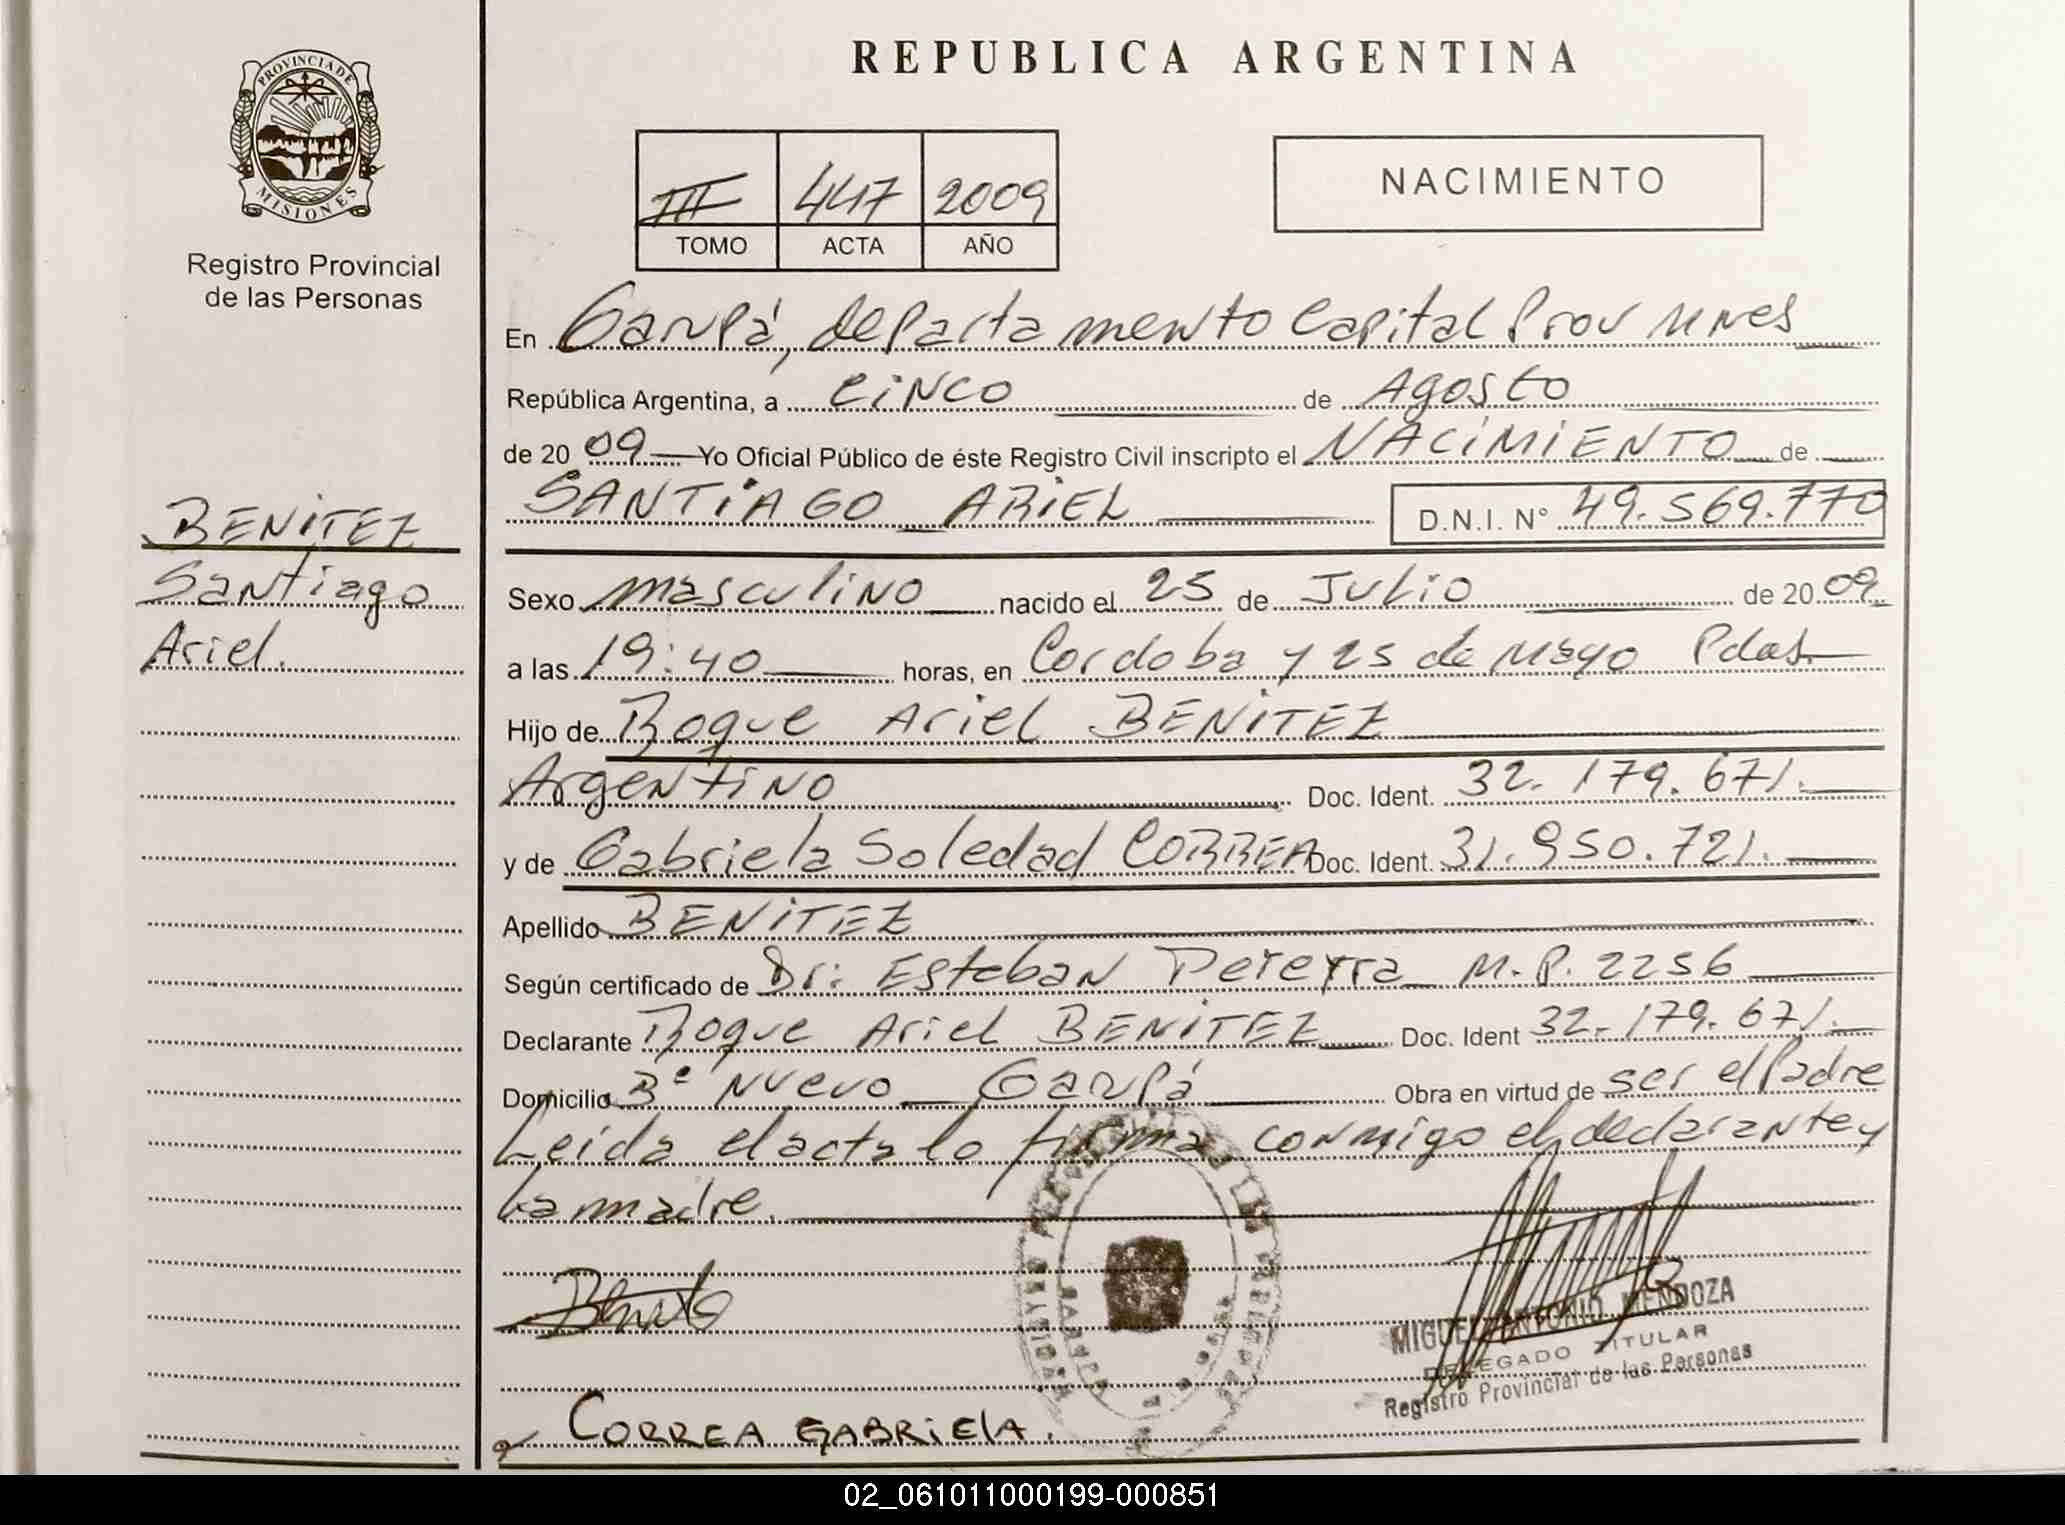 PROVINCIA DE
MISIONES
Registro Provincial
de las Personas
BENITEZ
Santiago
Ariel.
REPUBLICA ARGENTINA
III 447 2009
TOMO ACTA AÑO
NACIMIENTO
En Garupá, departamento Capital Prov Mnes
República Argentina, a CINCO de Agosto
de 2009 Yo Oficial Público de éste Registro Civil inscripto el NACIMIENTO de
SANTIAGO ARIEL D.N.I. N° 49.569.770
Sexo masculino nacido el 25 de Julio de 2009
a las 19:40 horas, en Cordoba y 25 de Mayo Pdas.
Hijo de Roque Ariel BENITEZ
Argentino Doc. Ident. 32.179.671.
y de Gabriela Soledad CORREA Doc. Ident. 31.950.721.
Apellido BENITEZ
Según certificado de Dr: Esteban Pereyra M.P. 2256
Declarante Roque Ariel BENITEZ Doc. Ident 32.179.671.
Domicilio B° Nuevo Garupá Obra en virtud de ser el Padre
Leida el acta lo firma conmigo el declarante y
La madre.
MIGUEL ANTONIO MENDOZA
DELEGADO TITULAR
Registro Provincial de las Personas
CORREA GABRIELA.
02_061011000199-000851